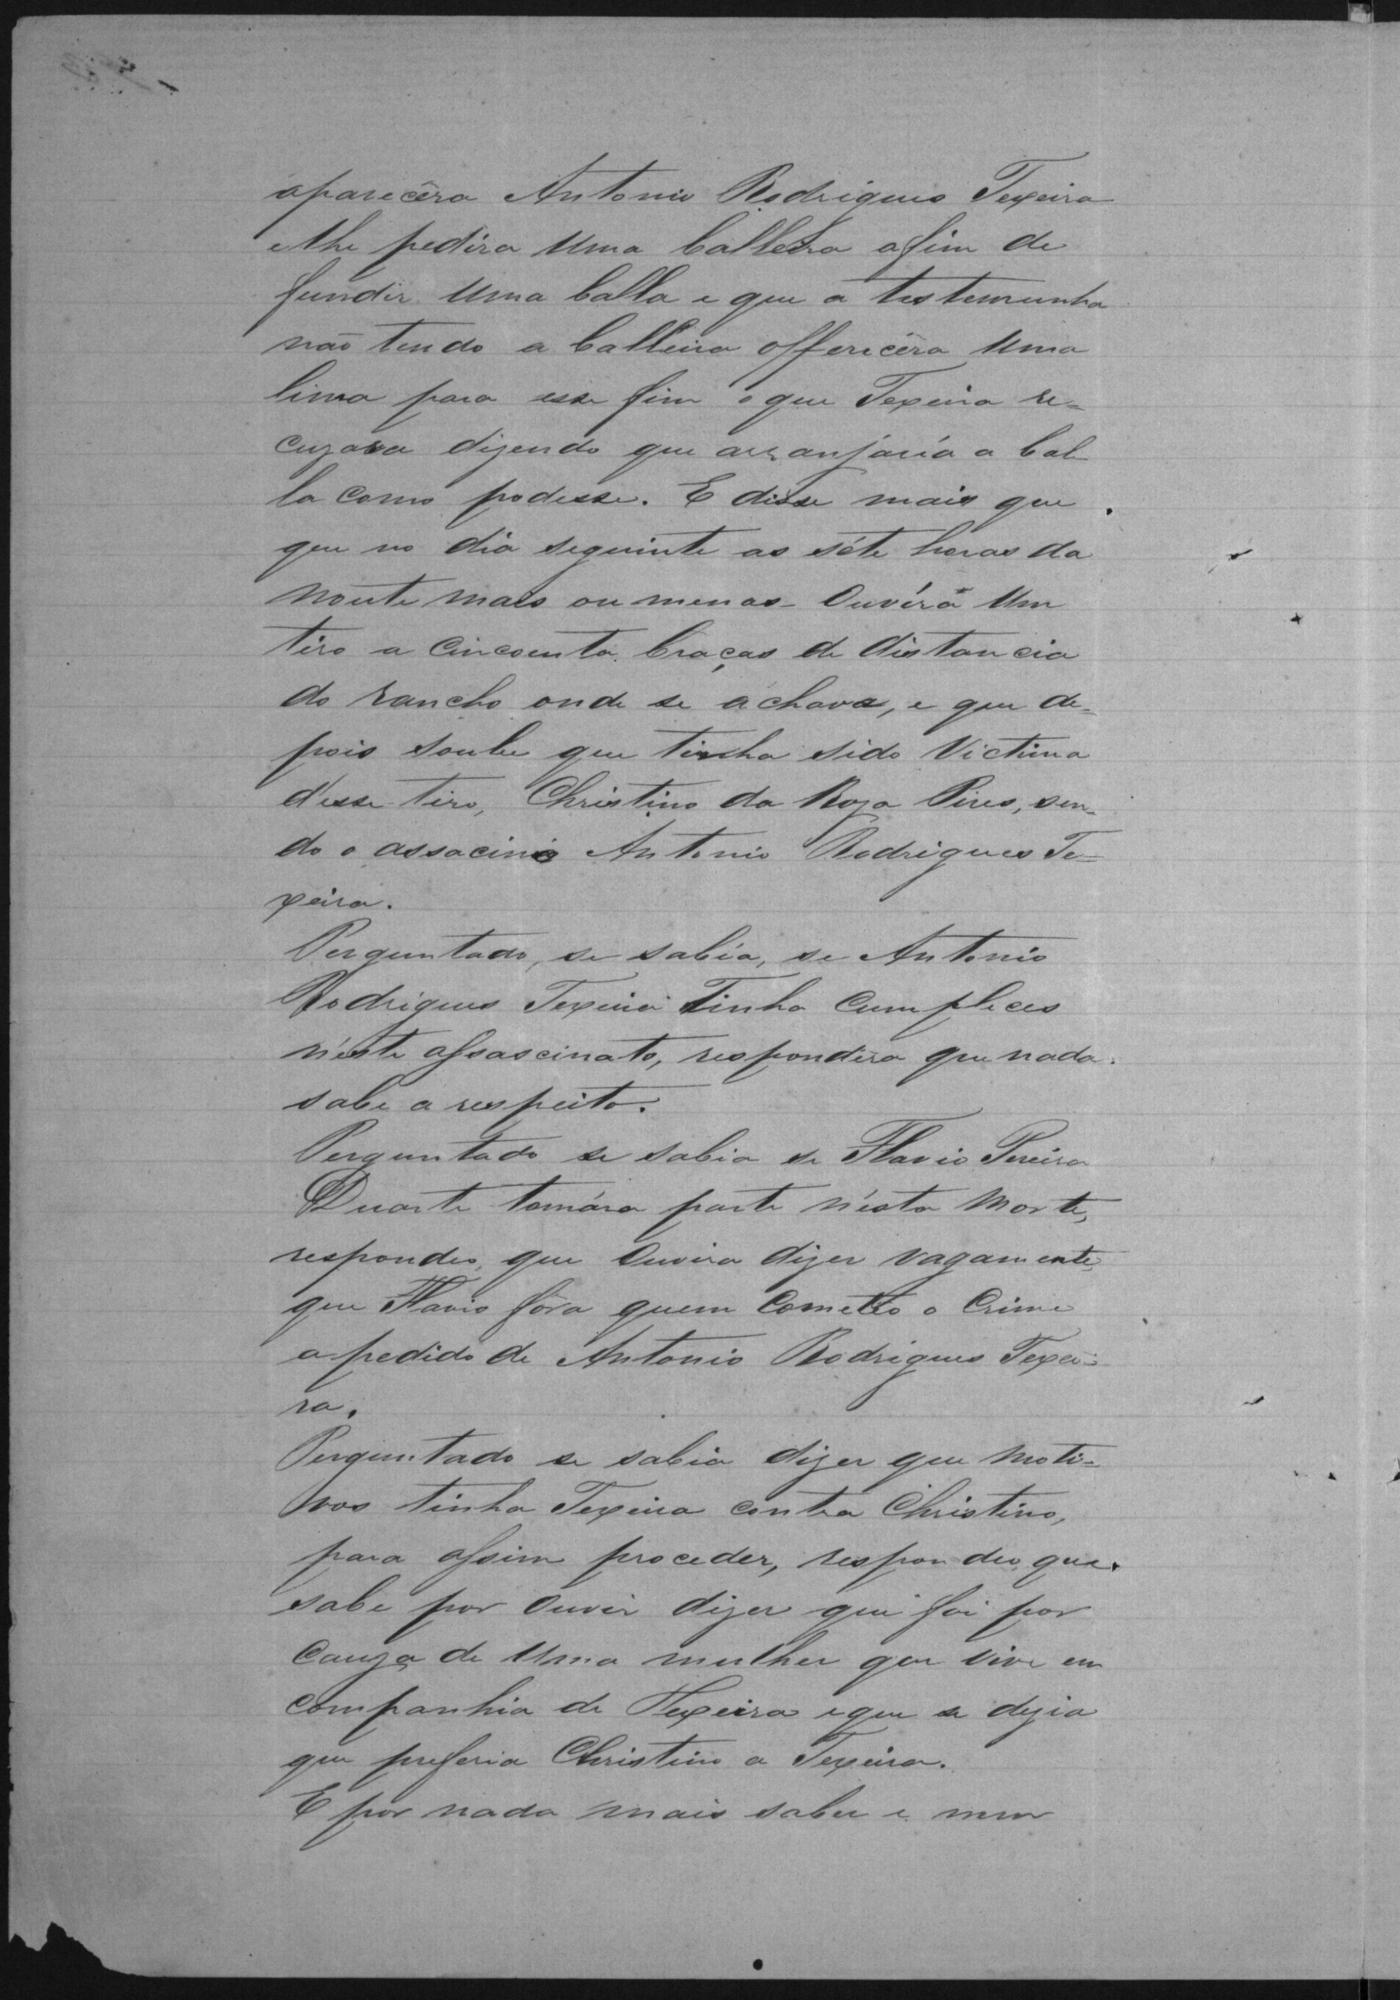 aparecêra Antonio Rodrigues Texeira
elhe pedira uma balleira afim de
fundir uma balla e que a testemunha
não tendo a balleira offerecêra uma
lima para esse fim o que Texeira re-
cuzara dizendo que arranjaría a bal
la como podesse. E disse mais que
que no dia seguinte as séte horas da
noute mais ou menos ouvíra um
tiro a cincoenta braças de distancia
do rancho onde se achava, e que de-
pois soube que tinha sido victima
d'esse tiro, Christino da Roza Pires, sen-
do o assacino Antonio Rodrigues Te-
xeira.
Perguntado, se sabía, se Antonio
Rodrigues Texeira tinha cumplices
n'este assascinato, respondera que nada
sabe a respeito.
Perguntado se sabia se Flavio Pereira
Duarte tomára parte n'ésta morte,
respondeo, que ouvira dizer vagamente
que Flavio fôra quem cometeo o crime
a pedido de Antonio Rodrigues Texei-
ra.
Perguntado se sabia dizer que moti-
vos tinha Texeira contra Christino,
para assim proceder, respondeo, que
sabe por ouvir dizer que foi por
cauza de uma mulher que vive em
companhia de Texeira e que se dizia
que preferia Christino a Texeira.
E por nada mais saber e nem